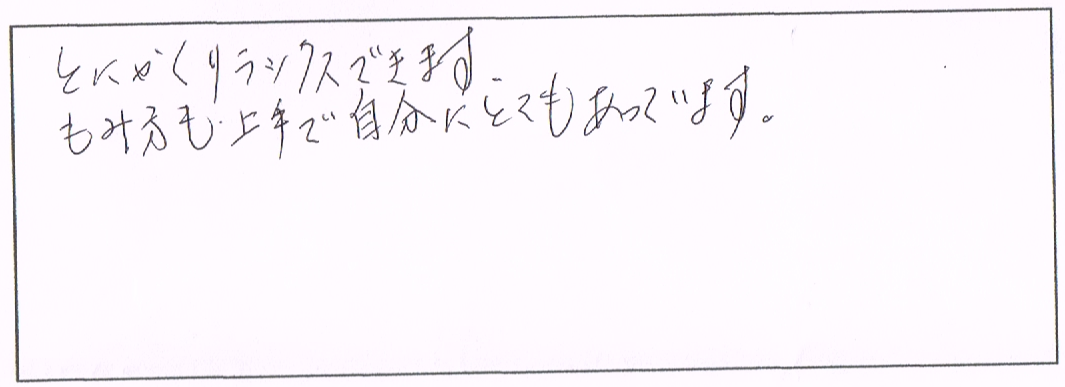 とにかくリラックスできます
もみ方も上手で自分にとてもあっています。